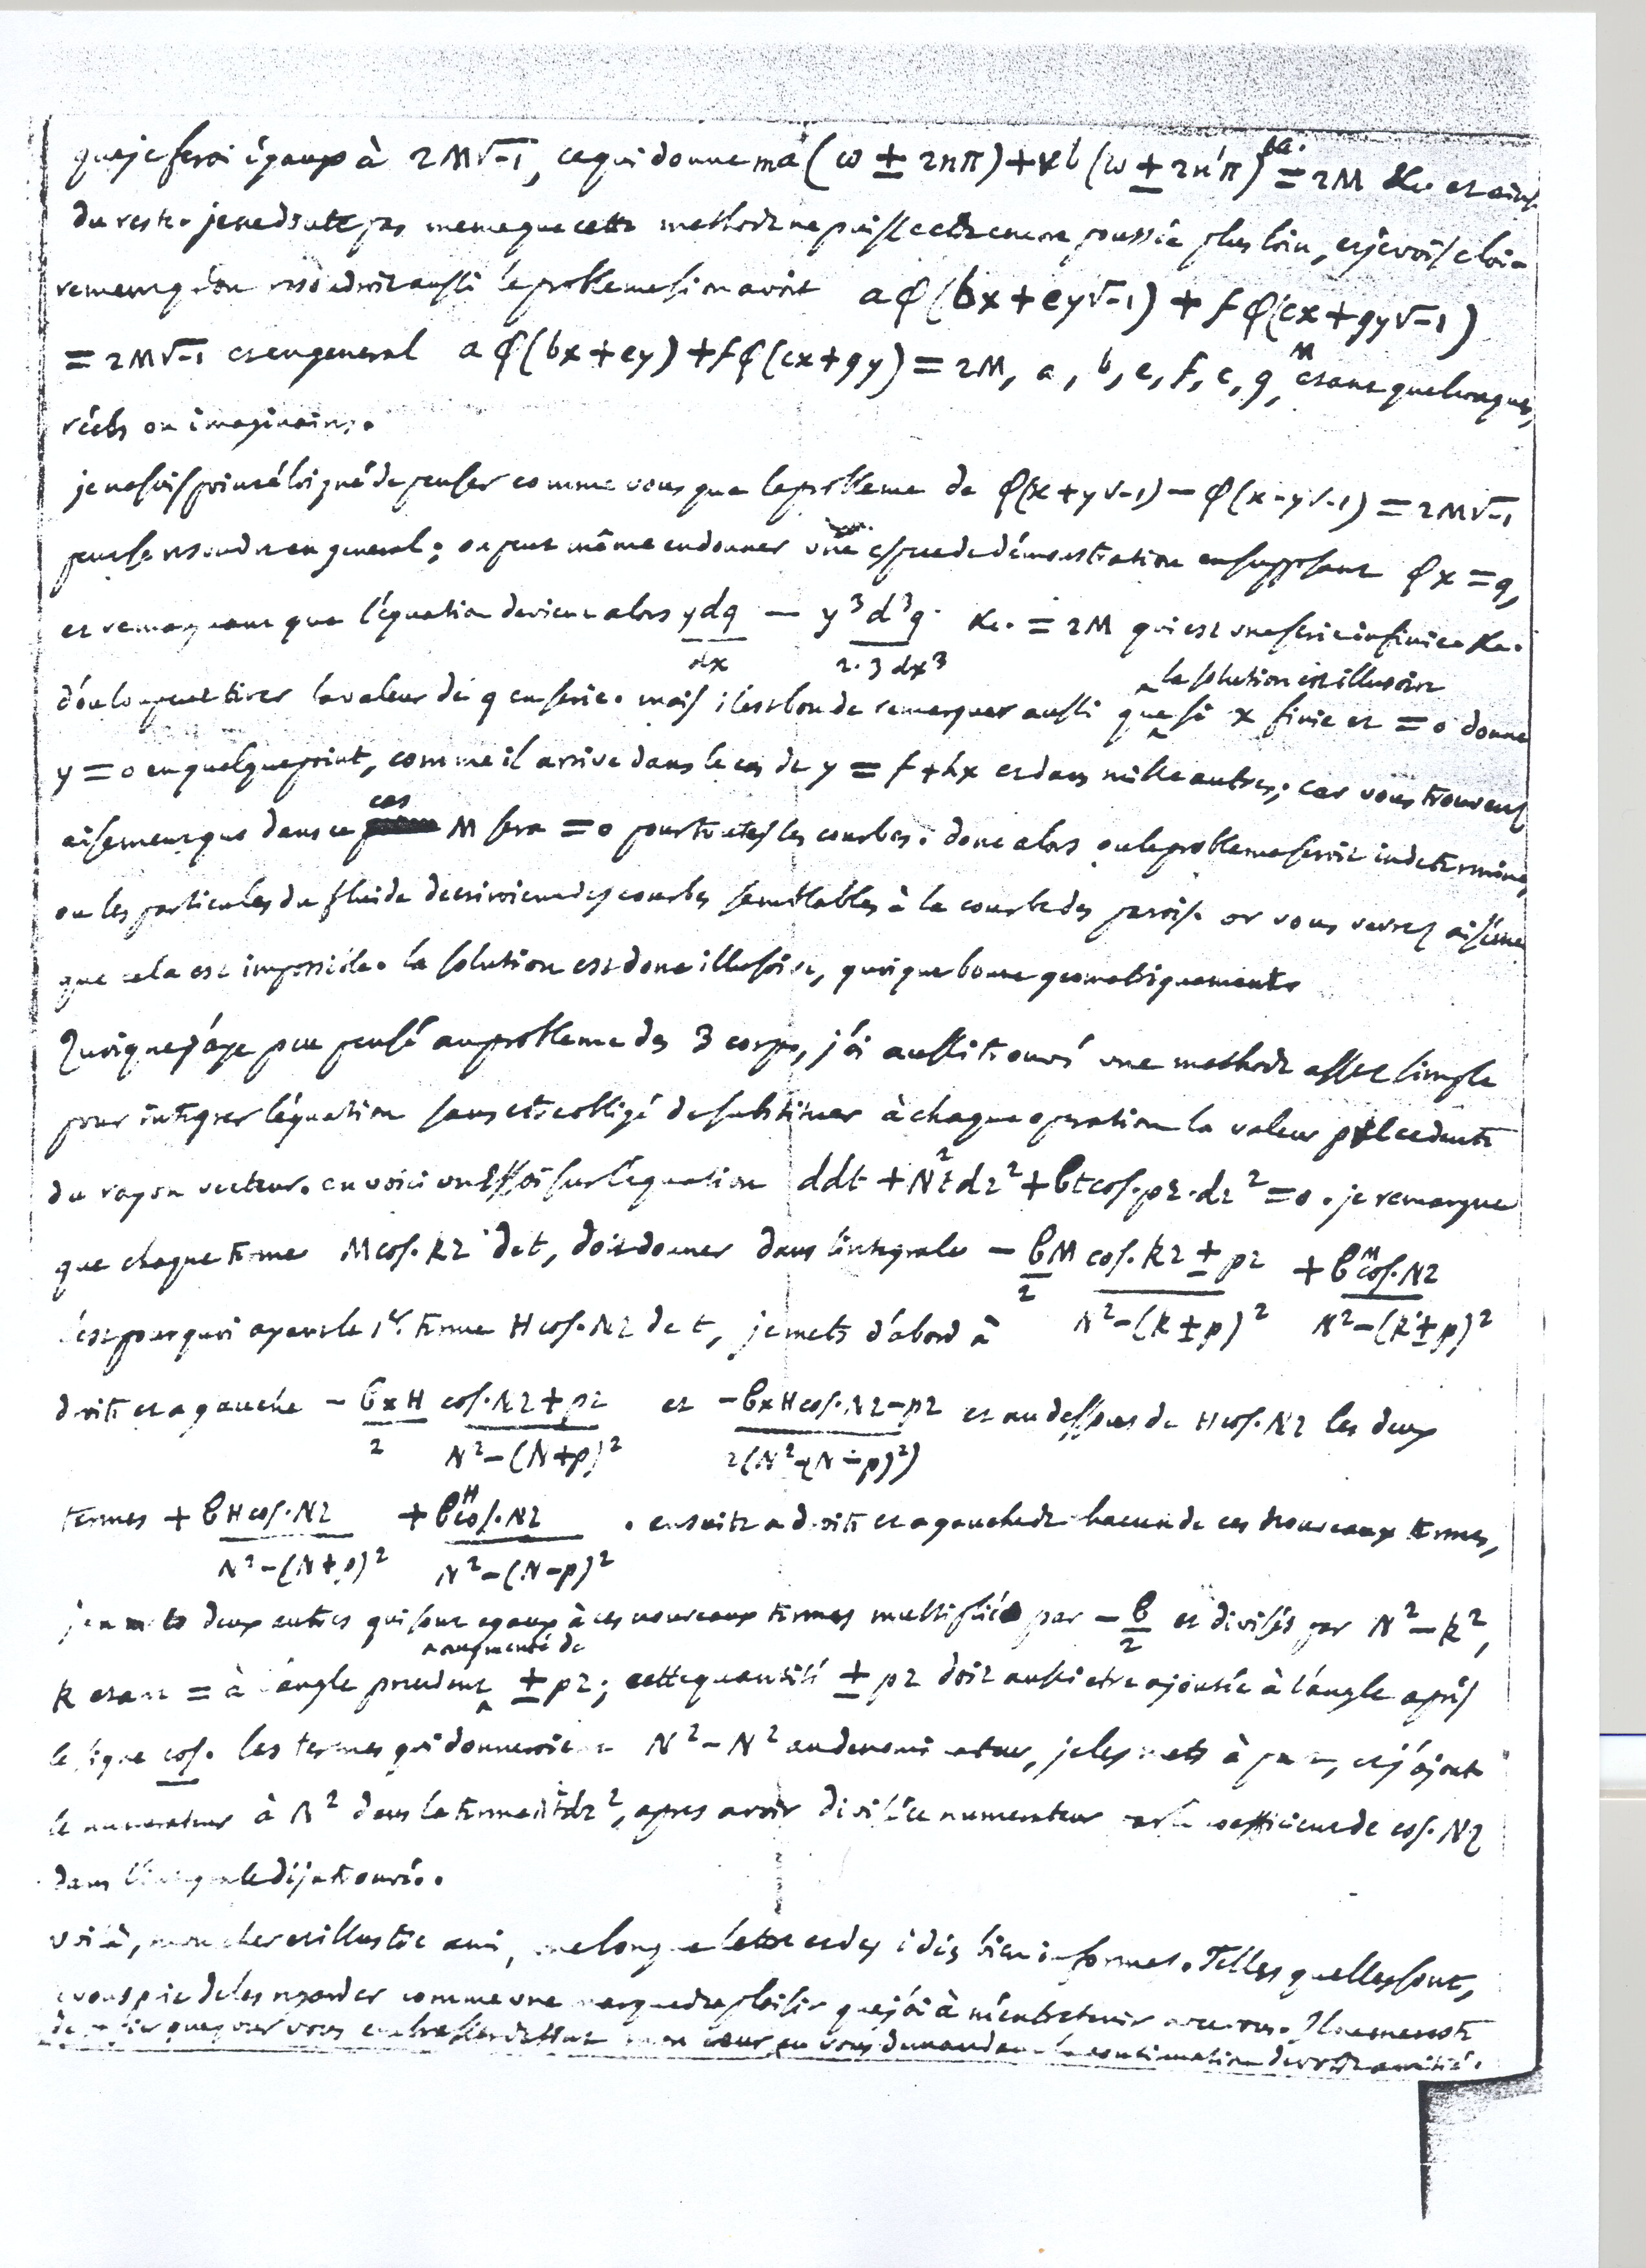 que je ferai égaux à 2M√-1, ce qui donne ma (ω ± 2nπ) + κb (ω ± 2n'π) &c. = 2M &c. et ainsi
du reste. je ne doute pas meme que cette methode ne puisse etre encore poussée plus loin, et je vois clai-
rement qu'on resoudroit aussi le probleme si on avoit aφ(bx+ey√-1) + fφ(cx+gy√-1)
= 2M√-1 et en general aφ(bx+ey) + fφ(cx+gy) = 2M, a, b, e, f, c, g, M etant quelconques,
réels ou imaginaires.
je ne suis point éloigné de penser comme vous que le probleme de φ(x+y√-1) - φ(x-y√-1) = 2M√-1
peut se resoudre en general; on peut même en donner une espece de démonstration en supposant φx = q,
et remarquant que l'équation devient alors ydq/dx - y³d³q/2.3dx³ &c. = 2M qui est une serie infinie &c.
d'où l'on peut tirer la valeur de q en serie. mais il est bon de remarquer aussi que la solution est illusoire si x finie et = 0 donne
y = 0 en quelque point, comme il arrive dans le cas de y = f+hx et dans mille autres; car vous trouverez
aisement que dans ce cas M sera = 0 pour toutes les courbes. donc alors ou le probleme seroit indeterminé,
ou les particules du fluide decriroient des courbes semblables à la courbe des parois. or vous verrez aisément
que cela est impossible. la solution est donc illusoire, quoique bonne geometriquement.
Quoique j'aye peu pensé au probleme des 3 corps, j'ai aussi trouvé une methode assez simple
pour integrer l'équation sans etre obligé de substituer à chaque operation la valeur precedente
du rayon vecteur. en voici un essai sur l'equation ddt + N²tdz² + βt cos. pz. dz² = 0. je remarque
que chaque terme M cos. kz de t, doit donner dans l'integrale - βM/2 cos. kz ± pz / N²-(k±p)² + βM cos. Nz / N²-(k±p)²
c'est pourquoi ayant le 1er. terme H cos. Nz de t, je mets d'abord à
droite et a gauche - β×H/2 cos. Nz+pz / N²-(N+p)² et -β×H cos. Nz-pz / 2(N²-(N-p)²) et au dessous de H cos. Nz les deux
termes + βH cos. Nz / N²-(N+p)² + βH cos. Nz / N²-(N-p)² . ensuite a droite et a gauche de chacun de ces nouveaux termes,
j'en mets deux autres qui sont egaux à ces nouveaux termes multipliés par - β/2 et divisés par N²-k²,
k etant = à l'angle precedent augmenté de ± pz; cette quantité ± pz doit aussi etre ajoutée à l'angle après
le signe cos. les termes qui donneroient N²-N² au denominateur, je les mets à part, et j'ajoute
le numerateur à N² dans le terme N²tdz², apres avoir divisé ce numerateur par le coefficient de cos. Nz
dans l'integrale deja trouvée.
voilà, mon cher et illustre ami, une longue lettre et des idées bien informes. Telles qu'elles sont,
je vous prie de les regarder comme une marque du plaisir que j'ai à m'entretenir avec vous. Il ne me reste
de papier que pour vous embrasser de tout mon cœur en vous demandant la continuation de votre amitié.